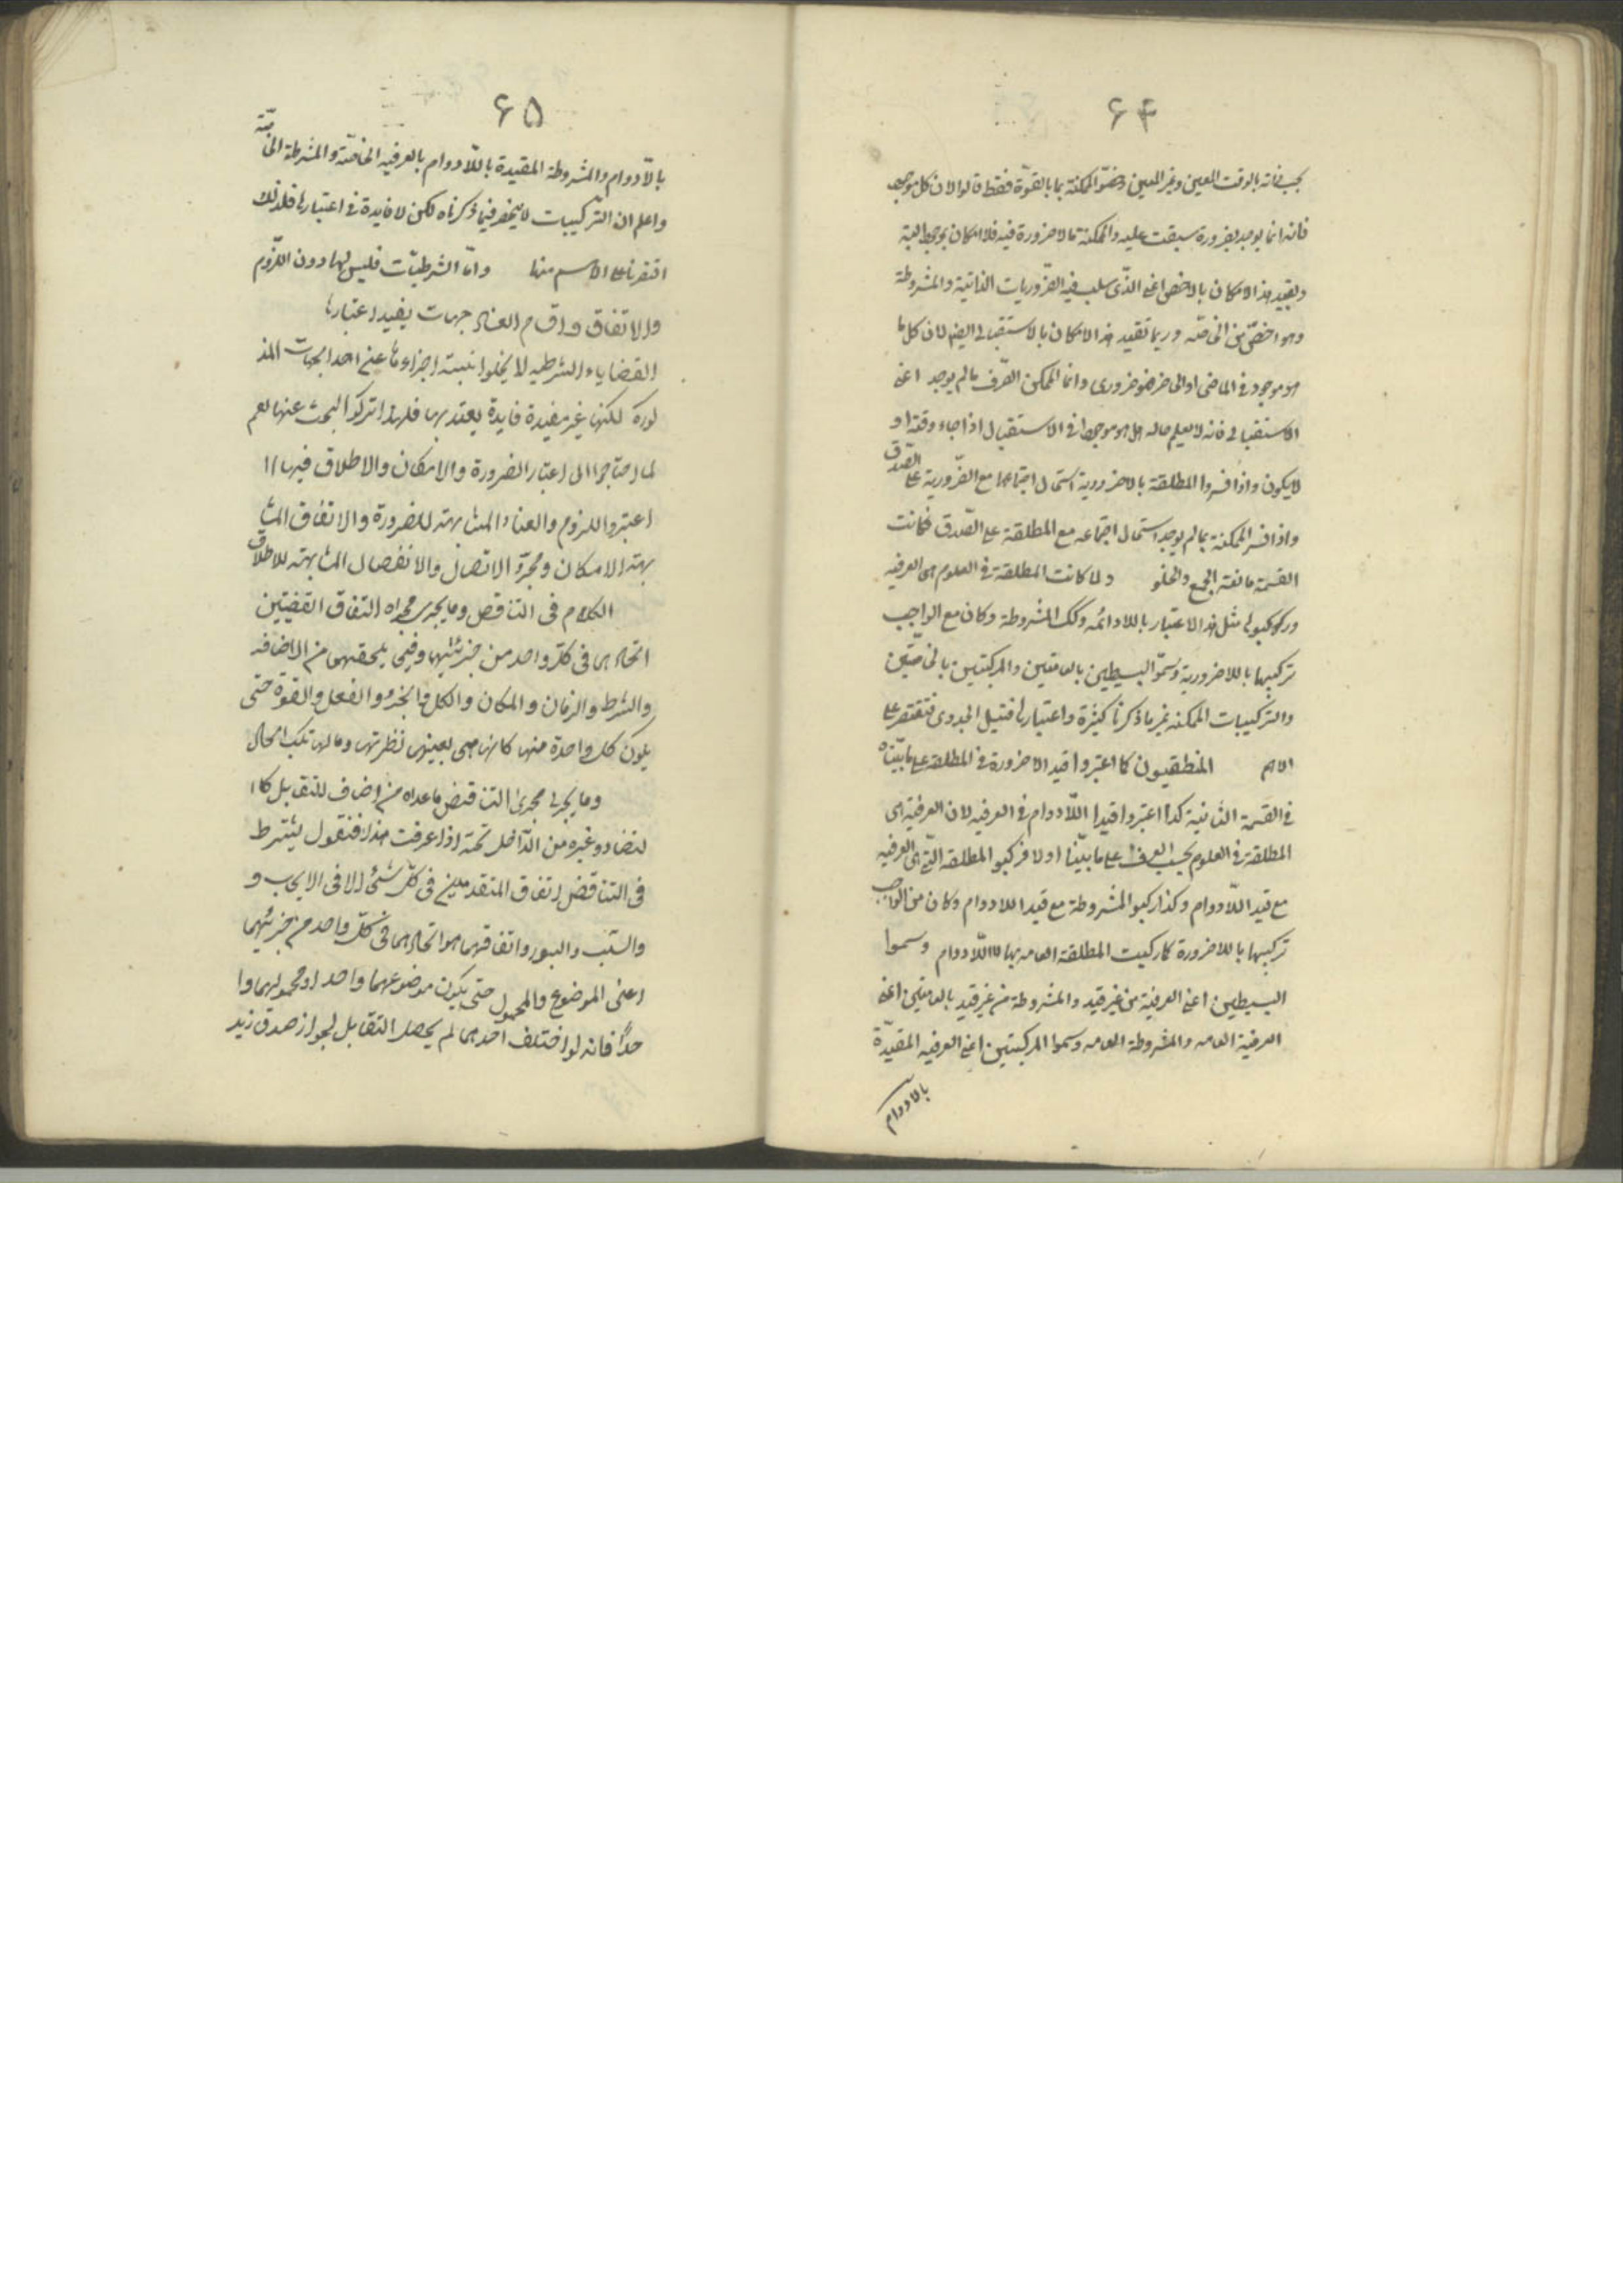 ۶۴
بحسب ذاته بالوقت المعين وغير المعين وخصّوا الممكنة بما بالقوّة فقط قالوا لان كل موجود
فانه انما يوجد بضرورة سبقت عليه والممكنة مالا ضرورة فيه فلا امكان بموجود البتة
وبقيد هذا الامكان بالاخص اعنى الذّى سلب فيه الضّروريات الذاتية والمشروطة
وهو اخصّ من الخاصّه وربما تقيد هذا الامكان بالاستقبالى ايضا لان كل ما
هو موجود فى الماضى او الحاضر فهو ضرورى وانما الممكن الصّرف مالم يوجد اعنى
الاستقبالى فانه لا يعلم حاله هل هو موجودا فى الاستقبال اذا جاء وقته او
لايكون واذا فسروا المطلقة بالاضرورية استحال اجتماعها مع الضّرورية على الصّدق
واذا فسر الممكنة بمالم يوجد استحال اجتماعه مع المطلقة على الصّدق فكانت
القسمة مانعة الجمع والخلو ولما كانت المطلقة فى العلوم هى العرفيه
وركبوها مثل هذا الاعتبار باللادائمه وكك المشروطة وكان مع الواجب
تركيبها باللاضرورية وسمّوا البسيطين بالعامتين والمركبتين بالخاصّتين
والتركيبات الممكنه غير ما ذكرنا كثيرة واعتبارها قليل الجدوى فنقتصر على
الاهم المنطقيون كما اعتبروا قيد الاضرورة فى المطلقة على ما بيّناه
فى القسمة الثانية كذا اعتبروا قيد اللّادوام فى العرفيه لان العرفيّة هى
المطلقة فى العلوم بحسب العرف على ما بيّنا اولا فركبوا المطلقة الّتى هى العرفيه
مع قيد اللّادوام وكذا ركبوا المشروطة مع قيد اللادوام وكان من الواجب
تركيبها باللاضرورة كما ركبت المطلقة العامه بها لا اللّادوام وسموا
البسيطين اعنى العرفيّة من غير قيد والمشروطة من غير قيد بالعامتين اعنى
العرفيّة العامه والمشروطة العامه وسموا المركبتين اعنى العرفيه المقيدّة
بالادوام
۶۵
بالّادوام والمشروطة المقيدة باللّادوام بالعرفيه الخاصّة والمشرطة الخاصّة
واعلم ان التّركيبات لا ينحصر فيما ذكرناه لكن لا فايدة فى اعتبارها فلذلك
اقتصرنا على الاسم منها وامّا الشرطيّات فليس لها دون اللزّوم
والاتفاق واقسام العناد جهات يفيد اعتبارها
القضايا الشرطيه لا يخلوا نسبة اجزاءها عن احد الجهات المذ
لورة لكنها غير مفيدة فايدة يعتد بها فلهذا تركوا البحث عنها نعم
لما احتاجوا الى اعتبار الضرورة والامكان والاطلاق فيها
اعتبروا اللزوم والعناد المشابهة للضرورة والاتفاق المشا
بهته الامكان ومجرّد الاتصال والانفصال المشابهته للاطلاق
الكلام فى التناقص وما يجرى مجراه التفاق القضيتين
اتحادهما فى كلّ واحد من جزئيهما وفيما يلحقهما من الاضافه
والشرط والزمان والمكان والكل والجزء والفعل والقوة حتى
يكون كل واحدة منها كانها هى بعينها نظرتها ومالها تلك الحال
وما يجرى مجرى التناقض ماعداه من اضاف للتقابل كا
لتضاد وغيره من الّداخل تحته اذا عرفت هذا فنقول يشترط
فى التناقض اتفاق المتقدمين فى كلّ شئ الا فى الايجاب و
والسّلب والسور واتفاقهما هو اتحادهما فى كلّ واحد من جزئيهما
اعنى الموضوع والمحمول حتى يكون موضوعهما واحدا ومحمولهما وا
حدًا فانه لو اختلف احدهما لم يحصل التقابل لجواز صدق زيد